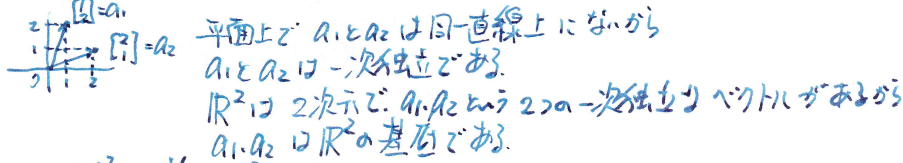 [1 2] = a1
2
1
[2 1] = a2
0 1 2
平面上で a1とa2は同一直線上にないから
a1とa2は一次独立である.
ℝ²は 2次元で. a1.a2という2つの一次独立なベクトルがあるから
a1.a2 はℝ²の基底である.